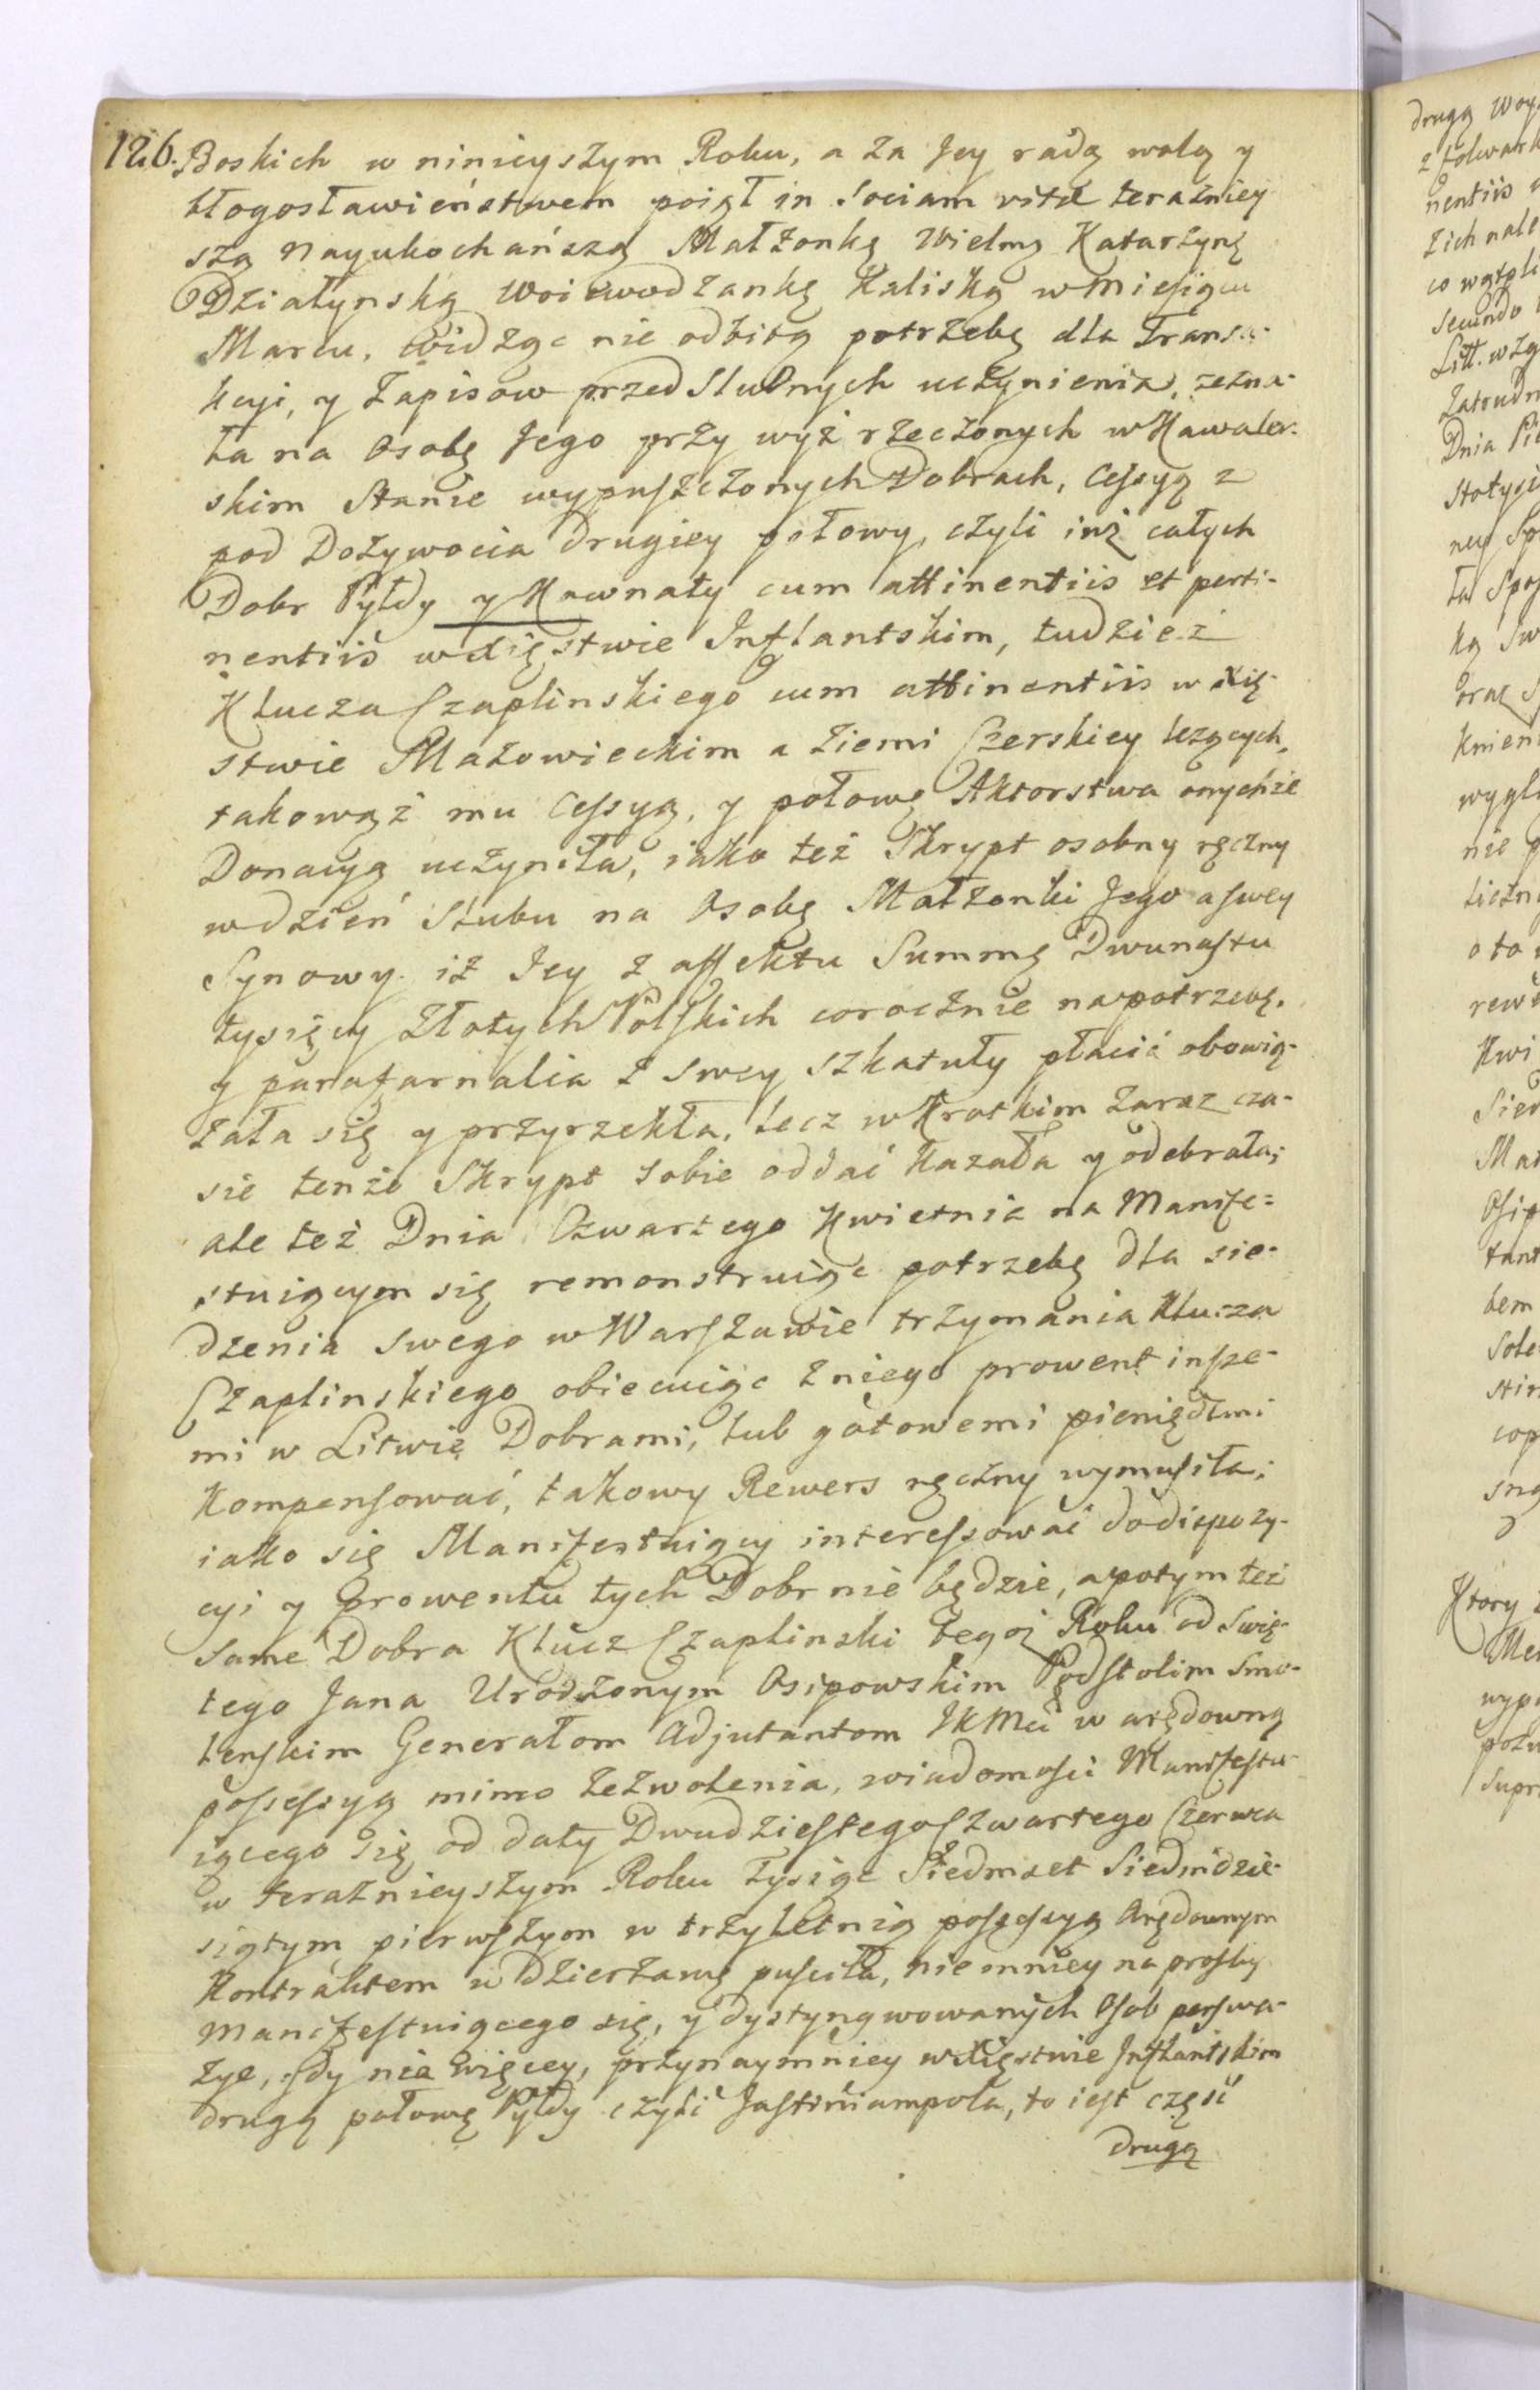 126. Boskich w ninieyszym Roku, a za Jey radą wolą y
błogosławieństwem poiął in Sociam vitæ teraźniey
szą Nayukochańszą Małżonkę Wielmą Katarzynę
Działynską Woiewodzankę Kaliską w Miesiącu
Marcu, widząc nie odbitą potrzebę dla Transa-
kcyi, y Zapisow przed Slubnych uczynienia, zezna-
ła na Osobę Jego przy wyż rzeczonych w Kawaler-
skim Stanie wypuszczonych Dobrach, Cessyą z
pod Dożywocia drugiey połowy, czyli iuż całych
Dobr Pyłdy y Kownaty cum attinentiis et perti-
nentiis w Xięstwie Inflantskim, tudzież
Klucza Czaplinskiego cum attinentiis w Xię-
stwie Mazowieckim a Ziemi Czerskiey leżących,
takowąż mu Cessyą, y połowę Aktorstwa onychże
Donacyą uczyniła, iako też Skrypt osobny ręczny
w dzień Slubu na Osobę Małżonki Jego a swey
Synowy iż Jey z affektu Summę Dwunastu
tysięcy Złotych Polskich corocznie na potrzebę,
y parafarnalia z swey szkatuły płacić obowią-
zała się y przyrzekła, lecz w Krotkim zaraz cza-
sie tenże Skrypt sobie oddać Kazała y odebrała;
ale też Dnia Czwartego Kwietnia na Manife-
stuiącym się remonstruiąc potrzebę dla sie-
dzenia swego w Warszawie trzymania Klucza
Czaplinskiego obiecuiąc z niego prowent insze-
mi w Litwie Dobrami, lub gotowemi pieniędzmi
Kompensować, takowy Rewers ręczny wymusiła;
iako się Manifestuiący interessować do dispozy-
cyi y Prowentu tych Dobr nie będzie, a potym też
same Dobra Klucz Czaplinski tegoż Roku od Swię-
tego Jana Urodzonym Osipowskim Podstolim Smo-
lenskim Generałom Adjutantom JKMci w arędowną
possessyą mimo zezwolenia, wiadomości Manifestu-
iącego się od daty Dwudziestego Czwartego Czerwca
w teraźnieyszym Roku Tysiąc Siedmset Siedmdzie-
siątym pierwszym w trzyletnią possessyą Arędownym
Kontraktem w dzierżawę puściła, niemniey na prośby
Manifestuiącego się, y dystyngwowanych Osob perswa-
zye, gdy nie więcey, przynaymniey w Xięstwie Inflantskim
drugą połowę Pyłdy czyli Justiniampola, to iest część
drugą